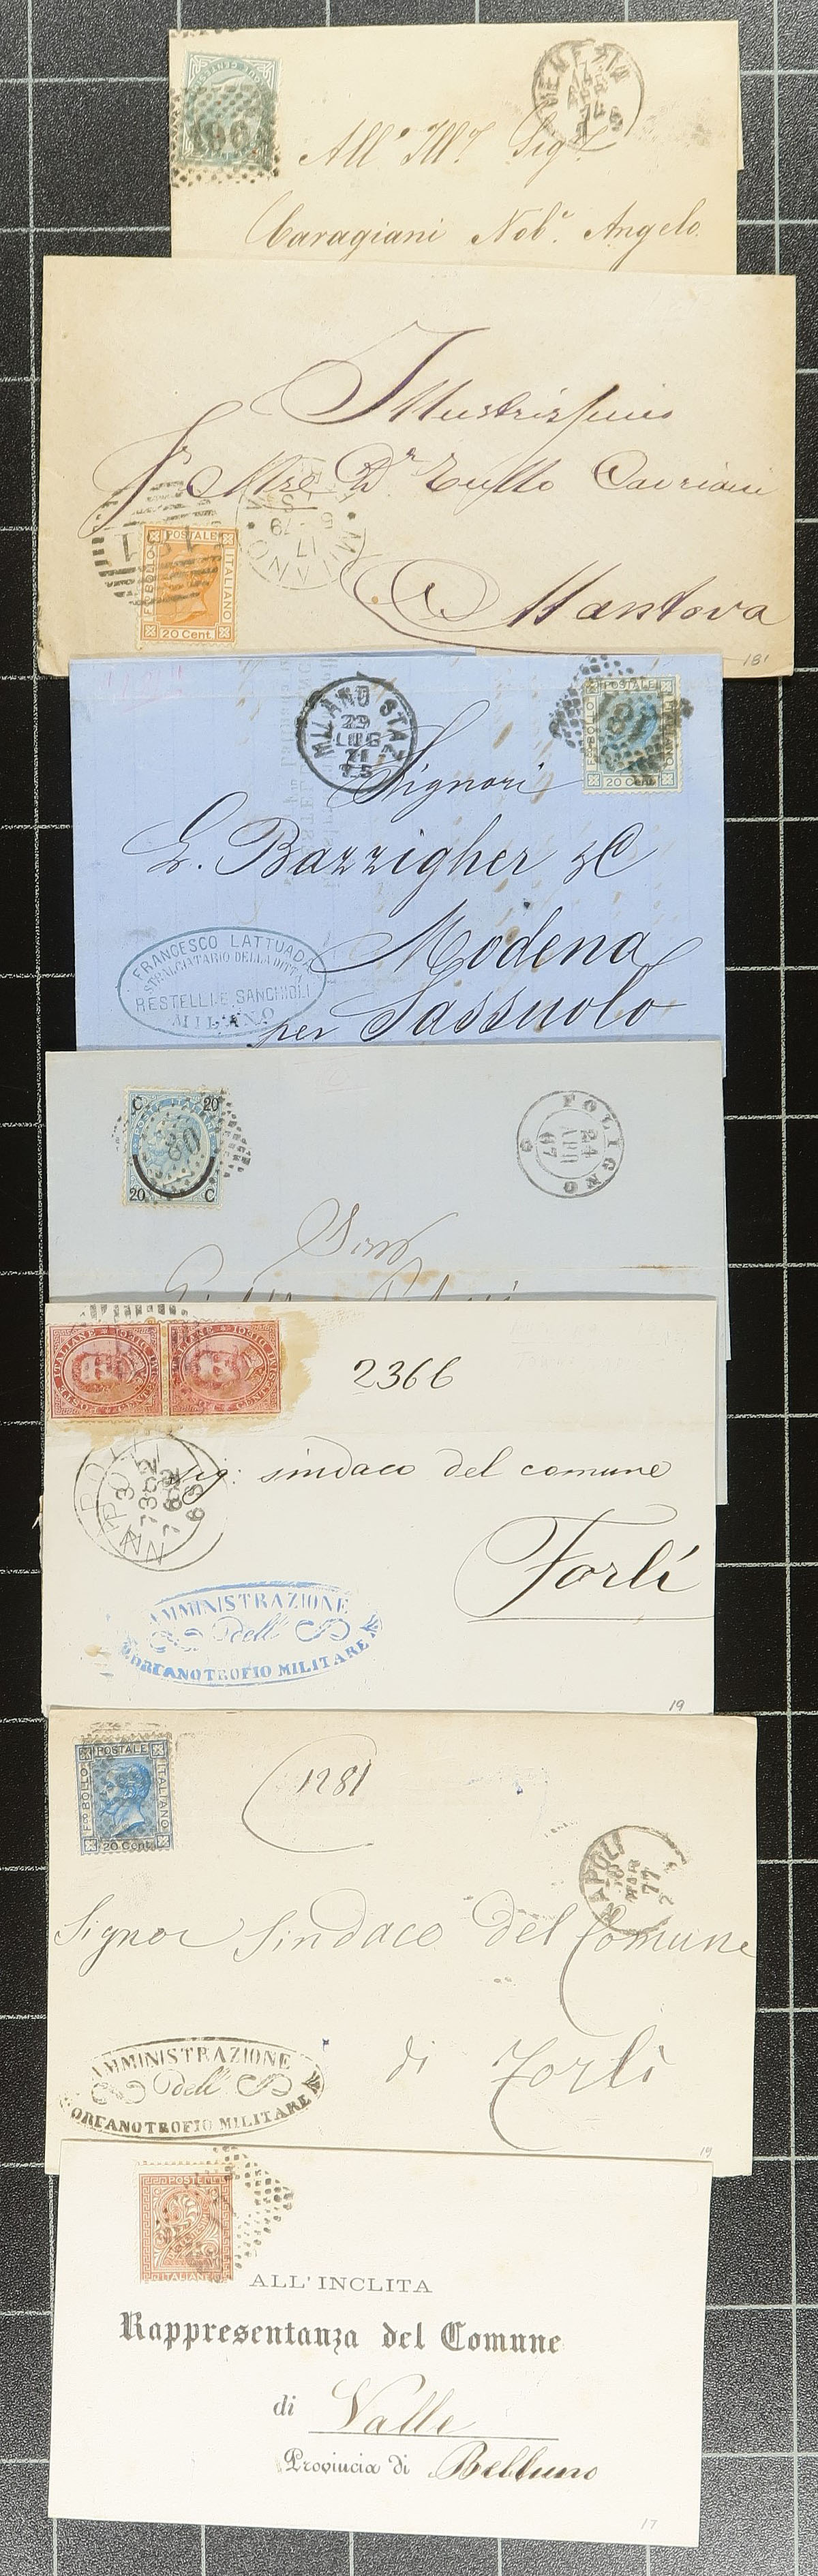 196
VENEZIA
All' Ill.º Sig.r
Caragiani Nob.e Angelo
Illustrissimo
Cavriani
Mantova
MILANO
17
5 - 79
181
POSTALE
Fco BOLLO
ITALIANO
20 Cent.
181
MILANO STAZ
29
LUG
71
181
POSTALE
Fco BOLLO
20 Cent.
Signori
G. Bazzigher & C
Modena
per Sassuolo
FRANCESCO LATTUADA
STRALCIATARIO DELLA DITTA
RESTELLI E SANCHIOLI
MILANO
C 20
80
20 C
FOLIGNO
24
APR
67
2366
Sig: sindaco del comune
Forlí
NAPOLI
AMMINISTRAZIONE
dell'
ORFANOTROFIO MILITARE
19
POSTALE
Fco BOLLO
ITALIANO
20 Cent.
1281
NAPOLI
MAR
77
Signor Sindaco del Comune
di Forlì
AMMINISTRAZIONE
dell'
ORFANOTROFIO MILITARE
19
POSTE
ITALIANE
ALL' INCLITA
Rappresentanza del Comune
di Valle
Provincia di Belluno
17